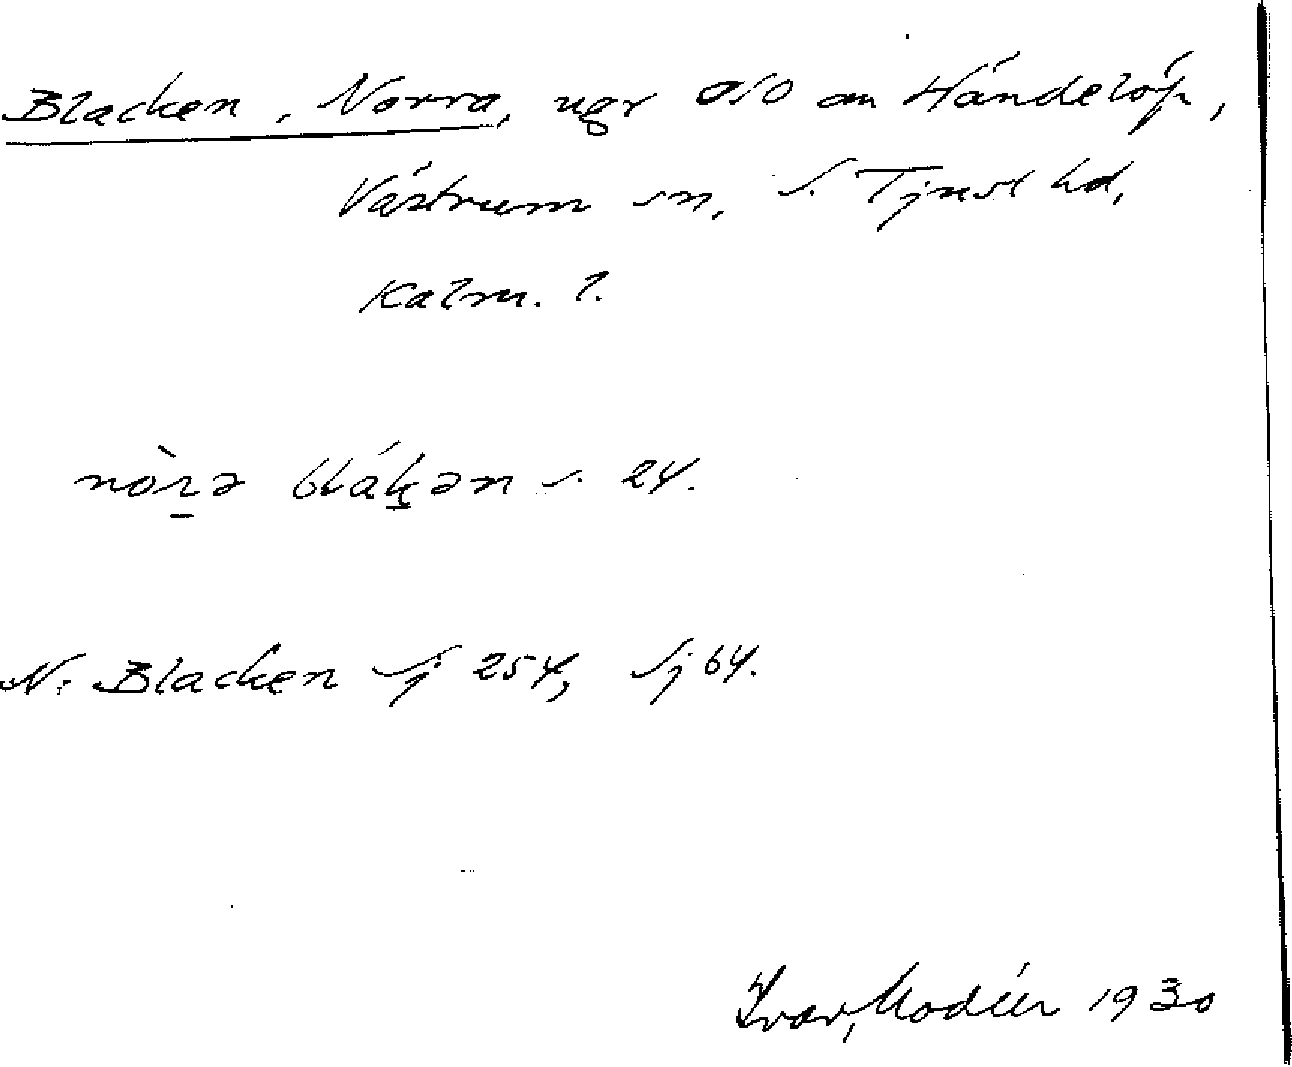 Blacken, Norra, ugr OSO om Händelöp,
Västrum sn, S. Tjust hd,
Kalm. l.
nòra blákən s. 24.
N. Blacken Sj 254, Sj 64.
Ivar Modéer 1930